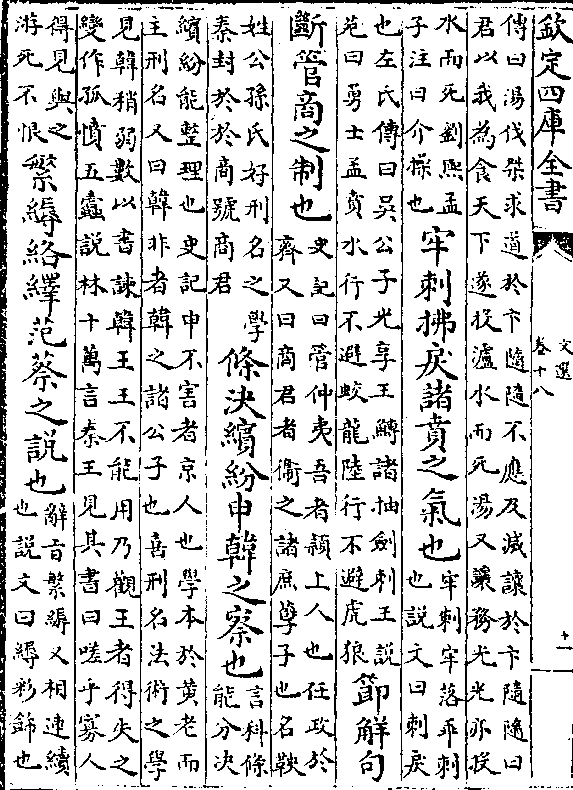 欽定四庫全書
文選
卷十八
十一
傳曰湯伐桀求道於卞隨隨不應及滅讓於卞隨隨曰
君以我為食天下遂投瀘水而死湯又讓務光光亦投
水而死劉熙孟
子注曰介操也
牢刺拂戾諸賁之氣也
牢刺牢落乖刺
也說文曰刺戾
也左氏傳曰吳公子光享王鱄諸抽劍刺王說
苑曰勇士孟賁水行不避蛟龍陸行不避虎狼
節解句
斷管商之制也
史記曰管仲夷吾者潁上人也任政於
齊又曰商君者衞之諸庶孽子也名鞅
姓公孫氏好刑名之學
秦封於於商號商君
條決繽紛申韓之察也
言科條
能分決
繽紛能整理也史記申不害者京人也學本於黃老而
主刑名又曰韓非者韓之諸公子也喜刑名法術之學
見韓稍弱數以書諫韓王王不能用乃觀王者得失之
變作孤憤五蠹說林十萬言秦王見其書曰嗟乎寡人
得見與之
游死不恨
繁縟絡繹范蔡之說也
辭旨繁縟又相連續
也說文曰縟彩飾也